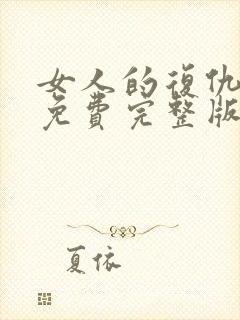 女人的復仇
免費完整版
夏依